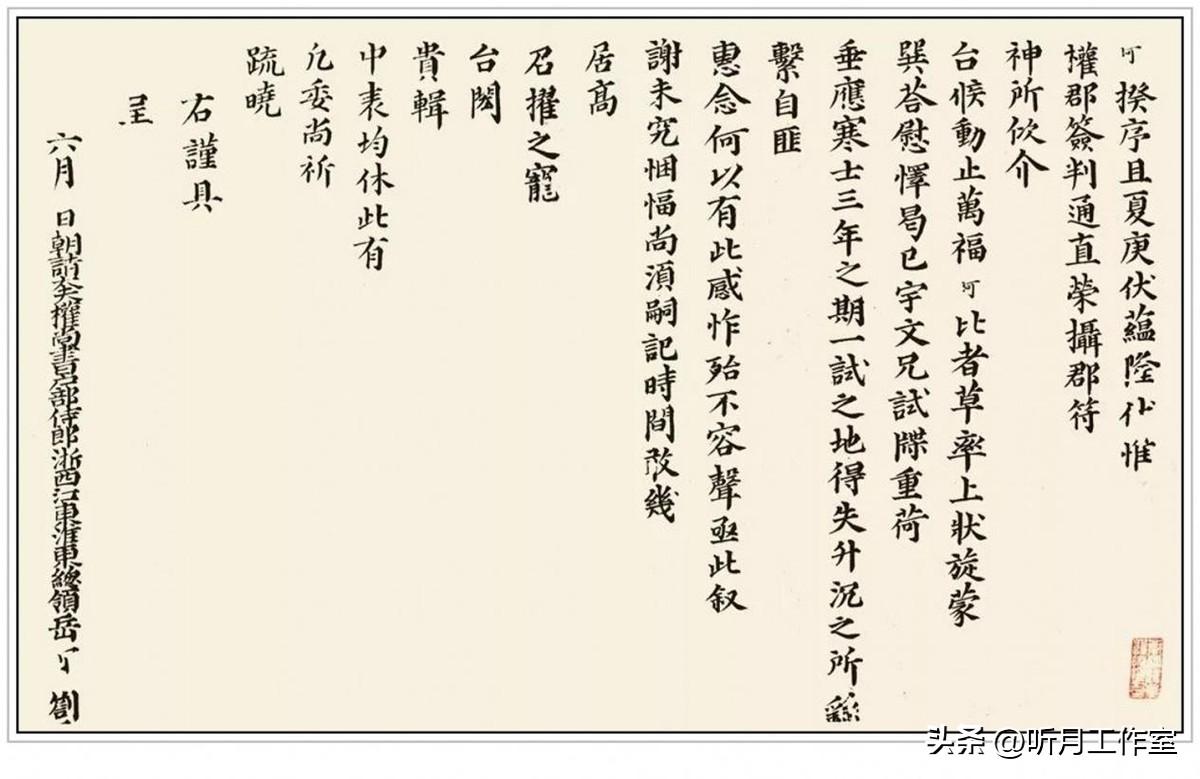 珂揆序且夏庚伏蘊隆仆惟
權郡簽判通直榮攝郡符
神所佽介
台候動止萬福珂比者草率上狀旋蒙
巽荅慰懌曷已宇文兄試牒重荷
垂應寒士三年之期一試之地得失升沉之所繇
繫自匪
惠念何以有此感怍殆不容聲亟此叙
謝未究悃愊尚須嗣記時間敢幾
居高
召擢之寵
台閎
貴輯
中表均休此有
凢委尚祈
疏曉
右謹具
呈
六月 日朝請大夫權尚書户部侍郎浙西江東淮東總領岳珂劄
头条 @听月工作室